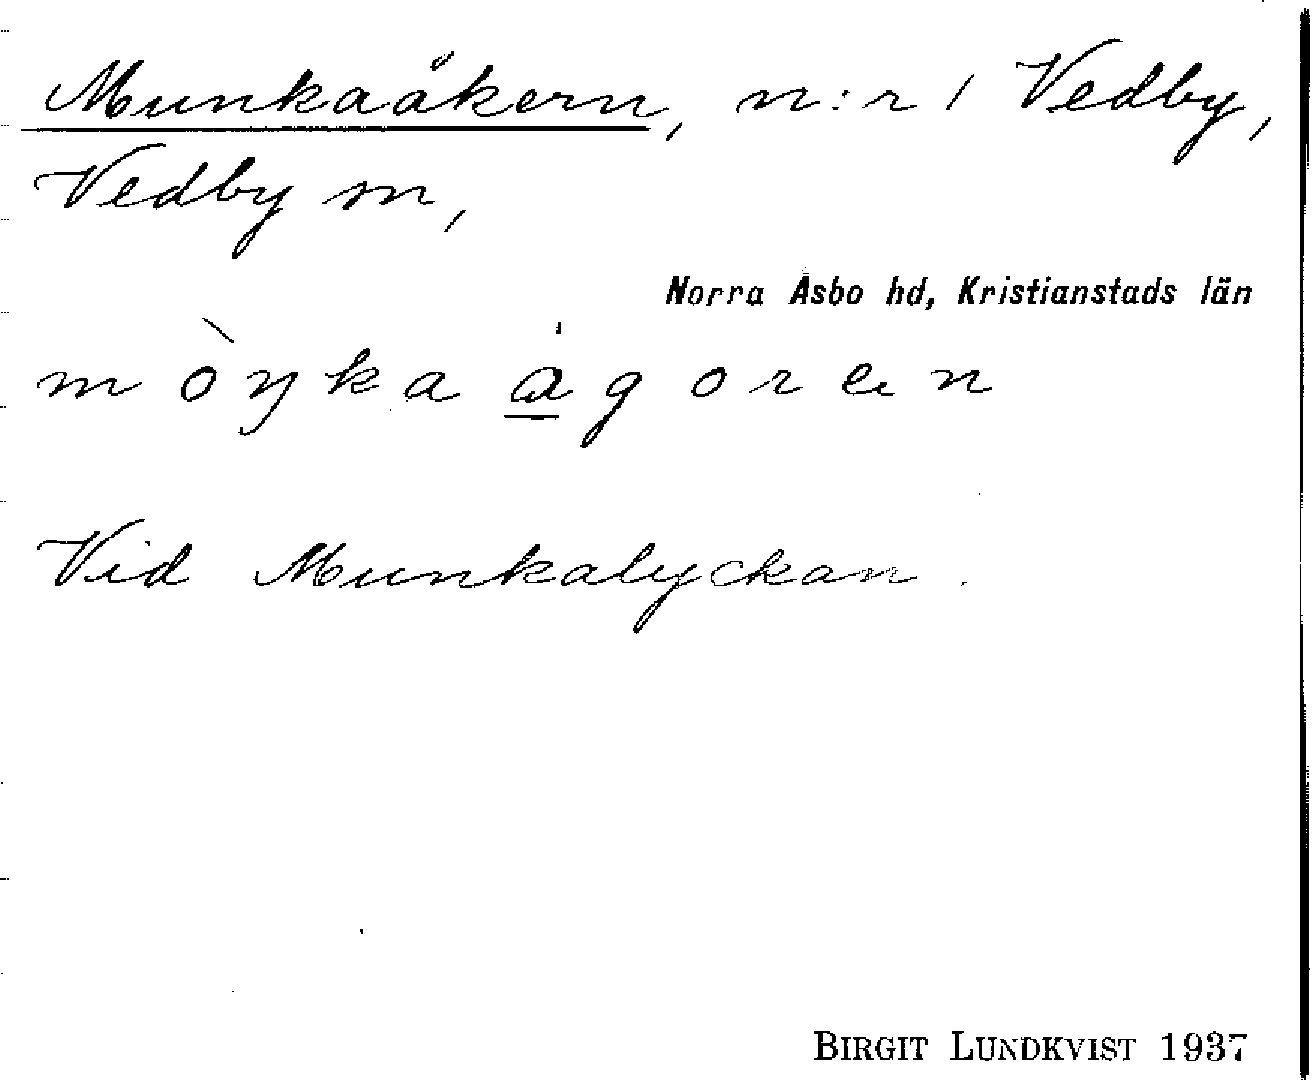 Munkaåkern, n:r 1 Vedby,
Vedby sn,
Norra Åsbo hd, Kristianstads län
m ò ŋ k a å g o r e n
Vid Munkalyckan.
BIRGIT LUNDKVIST 1937